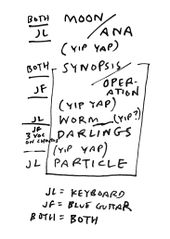 BOTH MOON/
JL ANA
(YIP YAP)
BOTH SYNOPSIS/
JF OPER-
ATION
(YIP YAP)
JL WORM (YIP?)
JF DARLINGS
3 VOC ON CHORUS
(YIP YAP)
JL PARTICLE
JL = KEYBOARD
JF = BLUE GUITAR
BOTH = BOTH